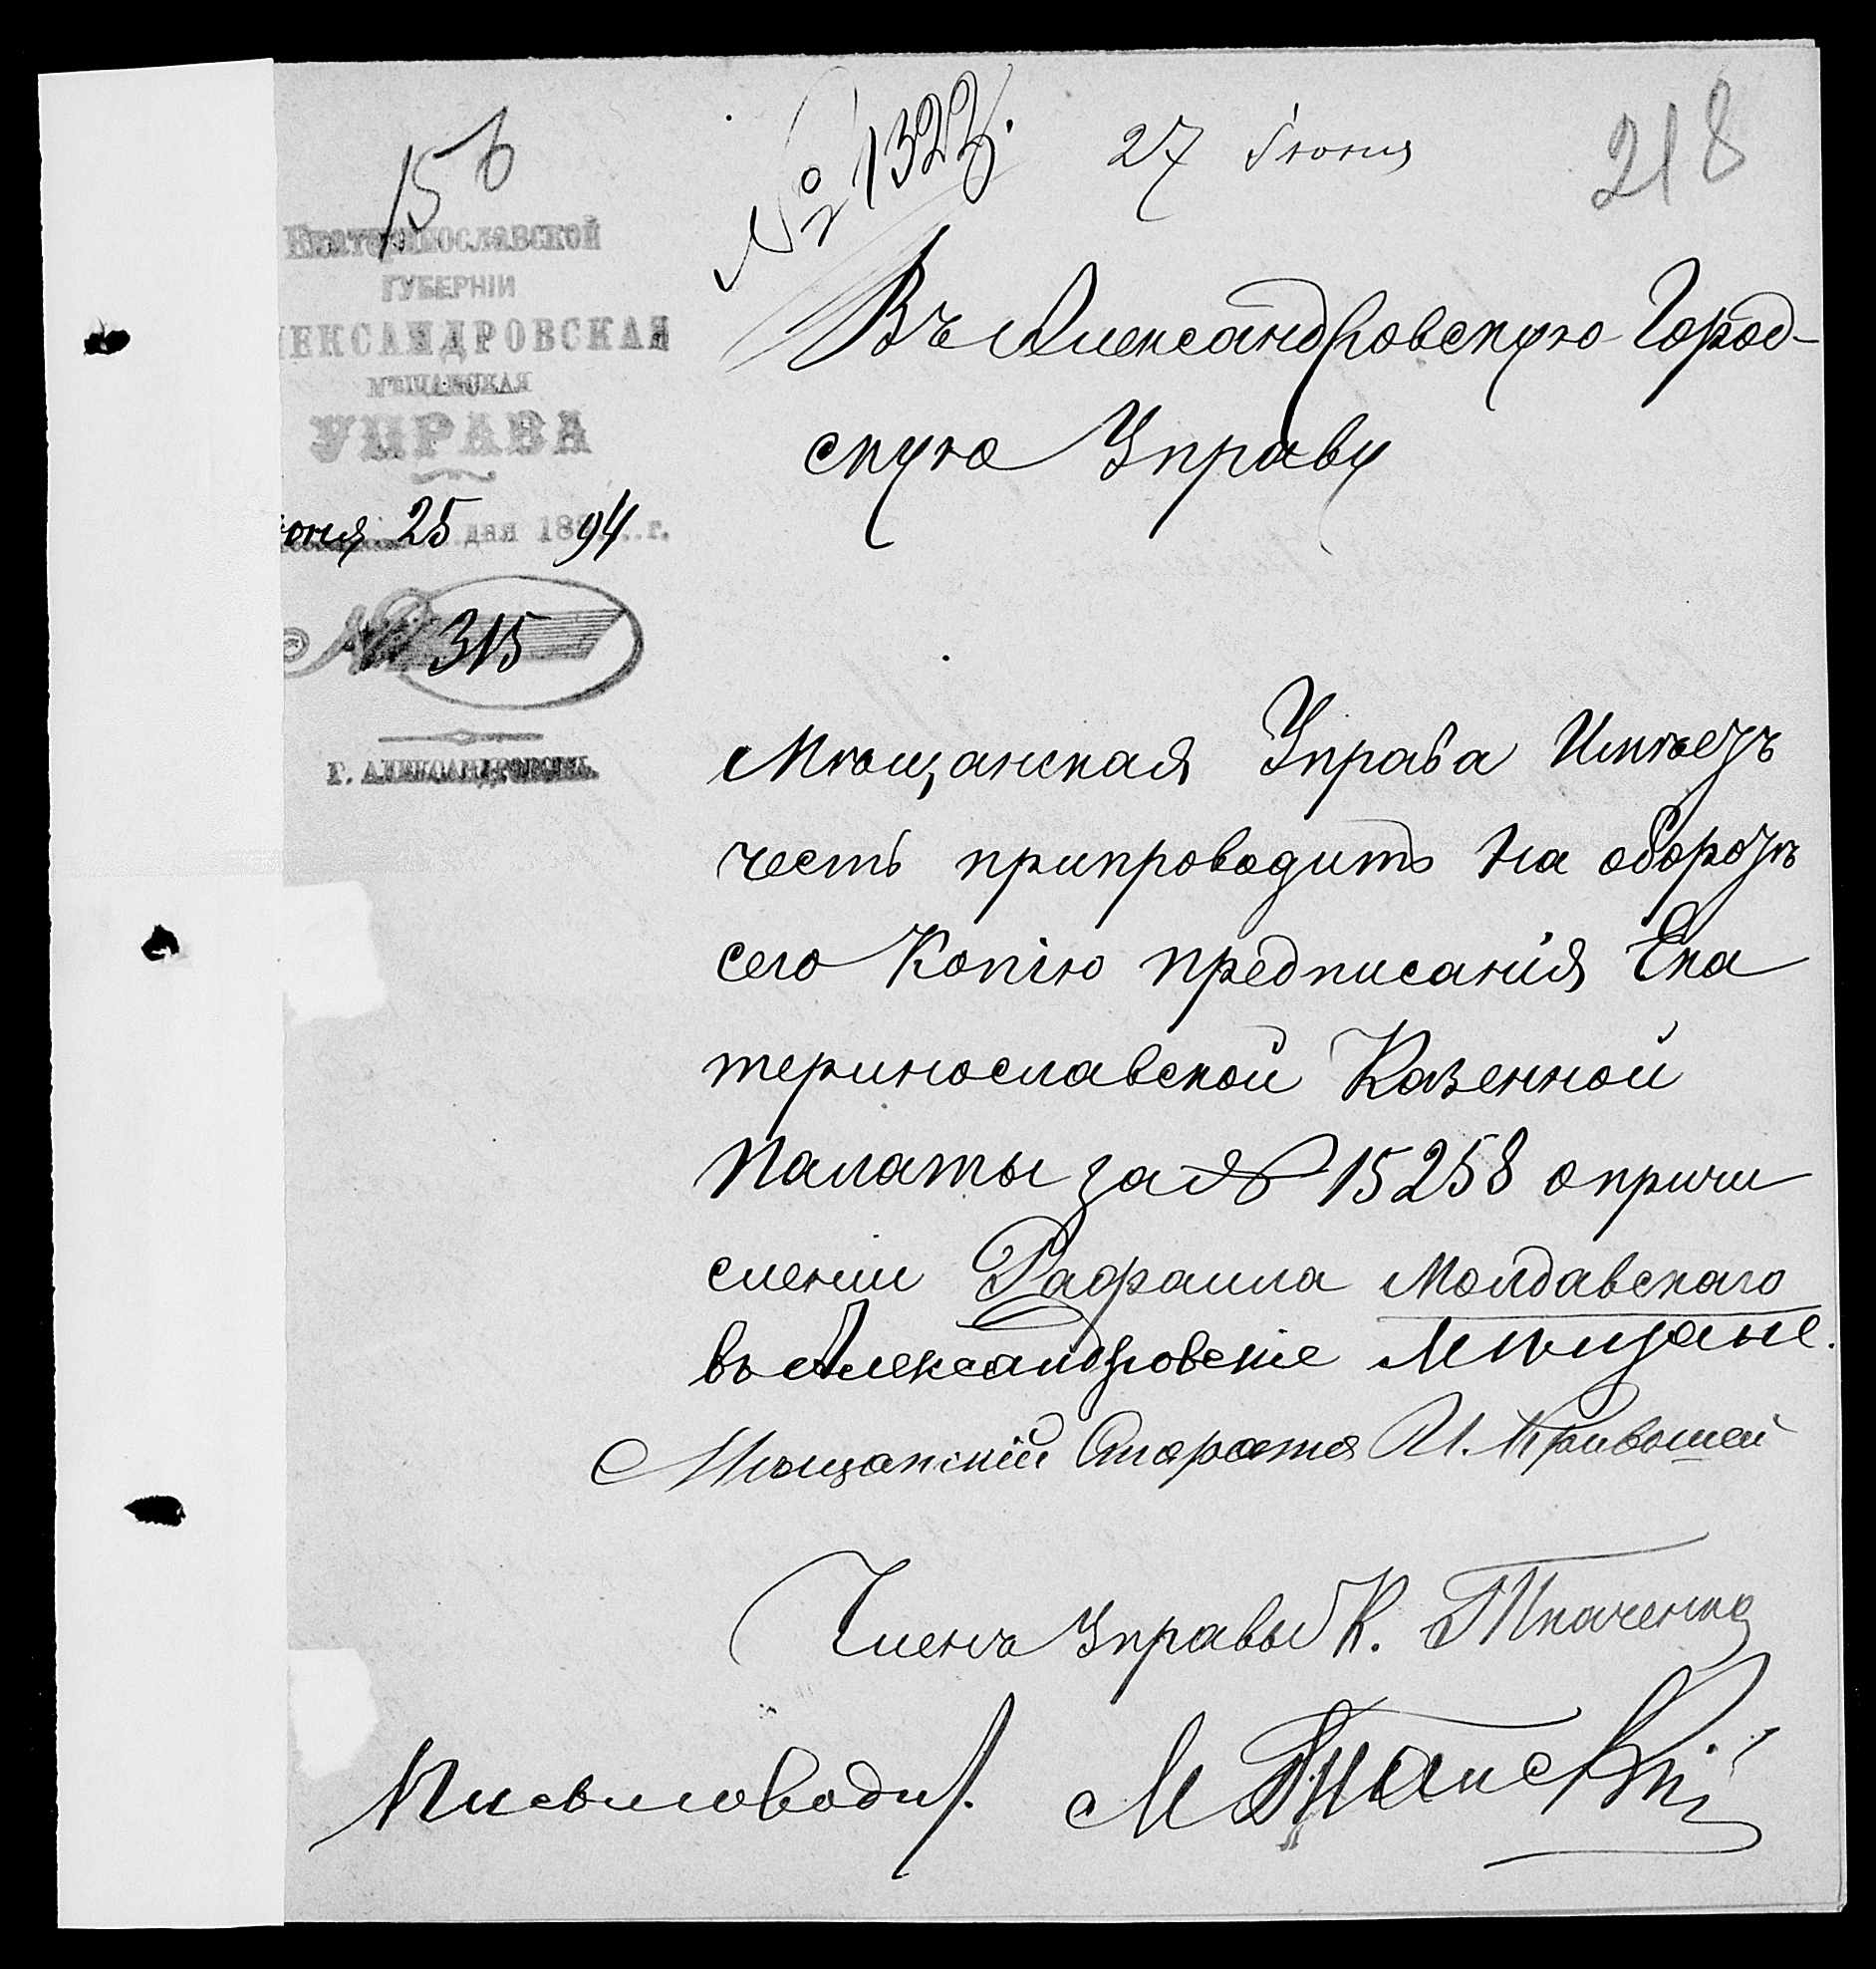 156
Екатеринославской
ГУБЕРНІИ
ЛЕКСАНДРОВСКАЯ
МѢЩАНСКАЯ
УПРАВА
юня 25 дня 1894 г.
№ 315
Г. АЛЕКСАНДРОВСКЪ.
№ 1322. 27 Іюня
218
Въ Александровскую Город-
скую Управу
Мѣщанская Управа Имѣетъ
честь припроводить на оборотѣ
сего Копію предписанія Ека
теринославской Казенной
Палаты за № 15258 о причи
сленіи Рафаила Молдавскаго
въ Александровскіе Мѣщане.
Мѣщанскій Староста И. Кривошей
Членъ Управы К. Ткаченко
Письмовод. М.